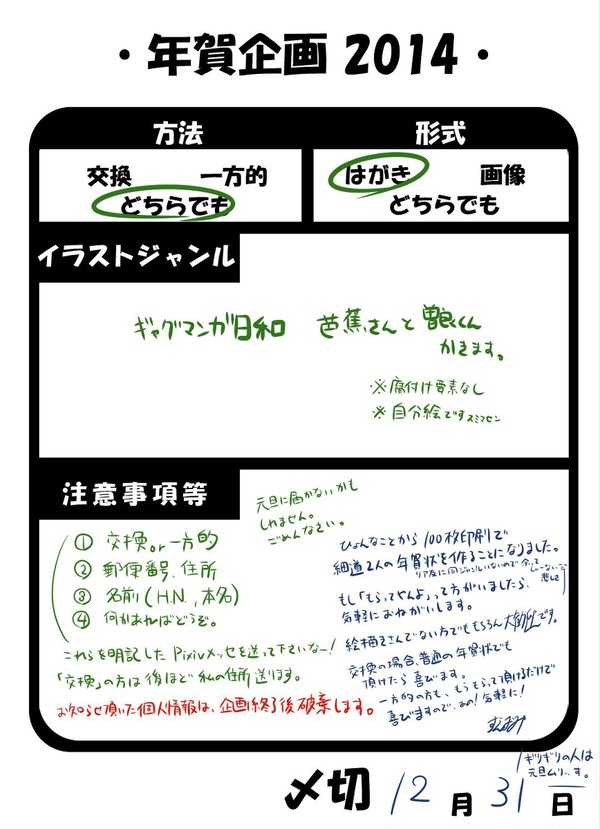 ・年賀企画 2014・
方法
形式
交換 一方的
どちらでも
はがき 画像
どちらでも
イラストジャンル
ギャグマンガ日和 芭蕉さんと曽良くん
かきます。
※腐付け要素なし
※自分絵ですスミマセン
注意事項等
元旦に届かないかも
しれません。
ごめんなさい。
① 交換or一方的
② 郵便番号、住所
③ 名前(H.N.,本名)
④ 何かあればどうぞ。
これらを明記したPixivメッセを送って下さいなー!
「交換」の方は後ほど私の住所送ります。
お知らせ頂いた個人情報は、企画終了後破棄します。
ひょんなことから100枚印刷で
細道2人の年賀状を作ることになりました。
リア友に同ジャンルいないので
悲しくて
もし「もらってやんよ」って方がいましたら、
気軽におねがいします。
絵描きさんでない方でももちろん大歓迎です。
交換の場合、普通の年賀状でも
頂けたら喜びます。
一方的の方も、もうもらって頂けるだけで
喜びますので、お気軽に!
〆切 12月31日
ギリギリの人は
元旦ムリ…す。